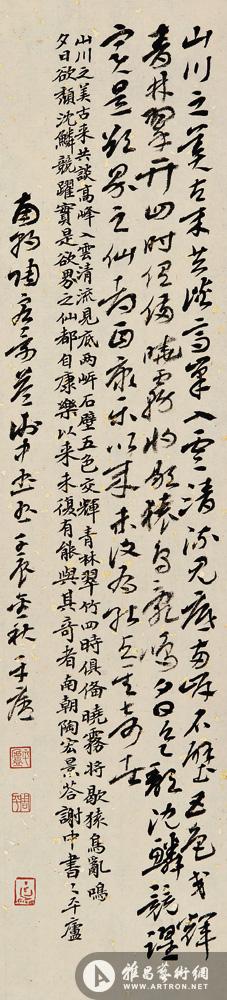 山川之美古来共談高峰入雲清流見底両岸石壁五色交輝
青林翠竹四时俱備曉霧将歇猿鸟亂鳴夕日欲頹沈鱗競躍
實是欲界之仙都自康樂以来未復有能与其奇者
山川之美古来共談高峰入雲清流見底両岍石壁五色交輝青林翠竹四時俱備曉霧將歇猿鳥亂鳴
夕日欲頹沈鱗競躍實是欲界之仙都自康樂以来未復有能與其奇者南朝陶宏景荅謝中書〻平廬
南朝陶宏景荅謝中書書壬辰金秋平廬
雅昌藝術網
WWW.ARTRON.NET